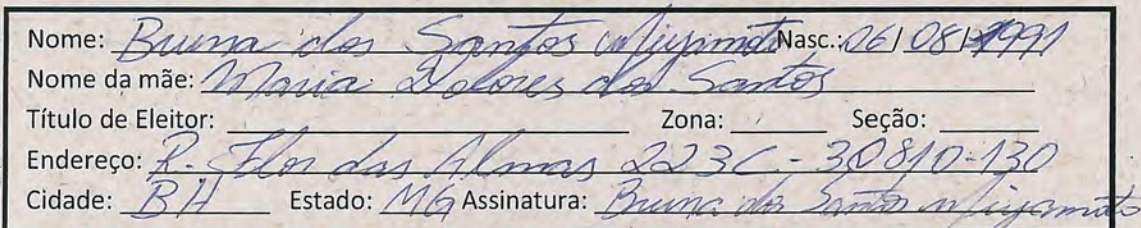 Nome: Bruna dos Santos Miyamoto Nasc.: 06/08/1991
Nome da mãe: Maria Dolores dos Santos
Título de Eleitor: Zona: Seção:
Endereço: R. Flor das Almas 223C - 30810-130
Cidade: BH Estado: MG Assinatura: Bruna dos Santos Miyamoto